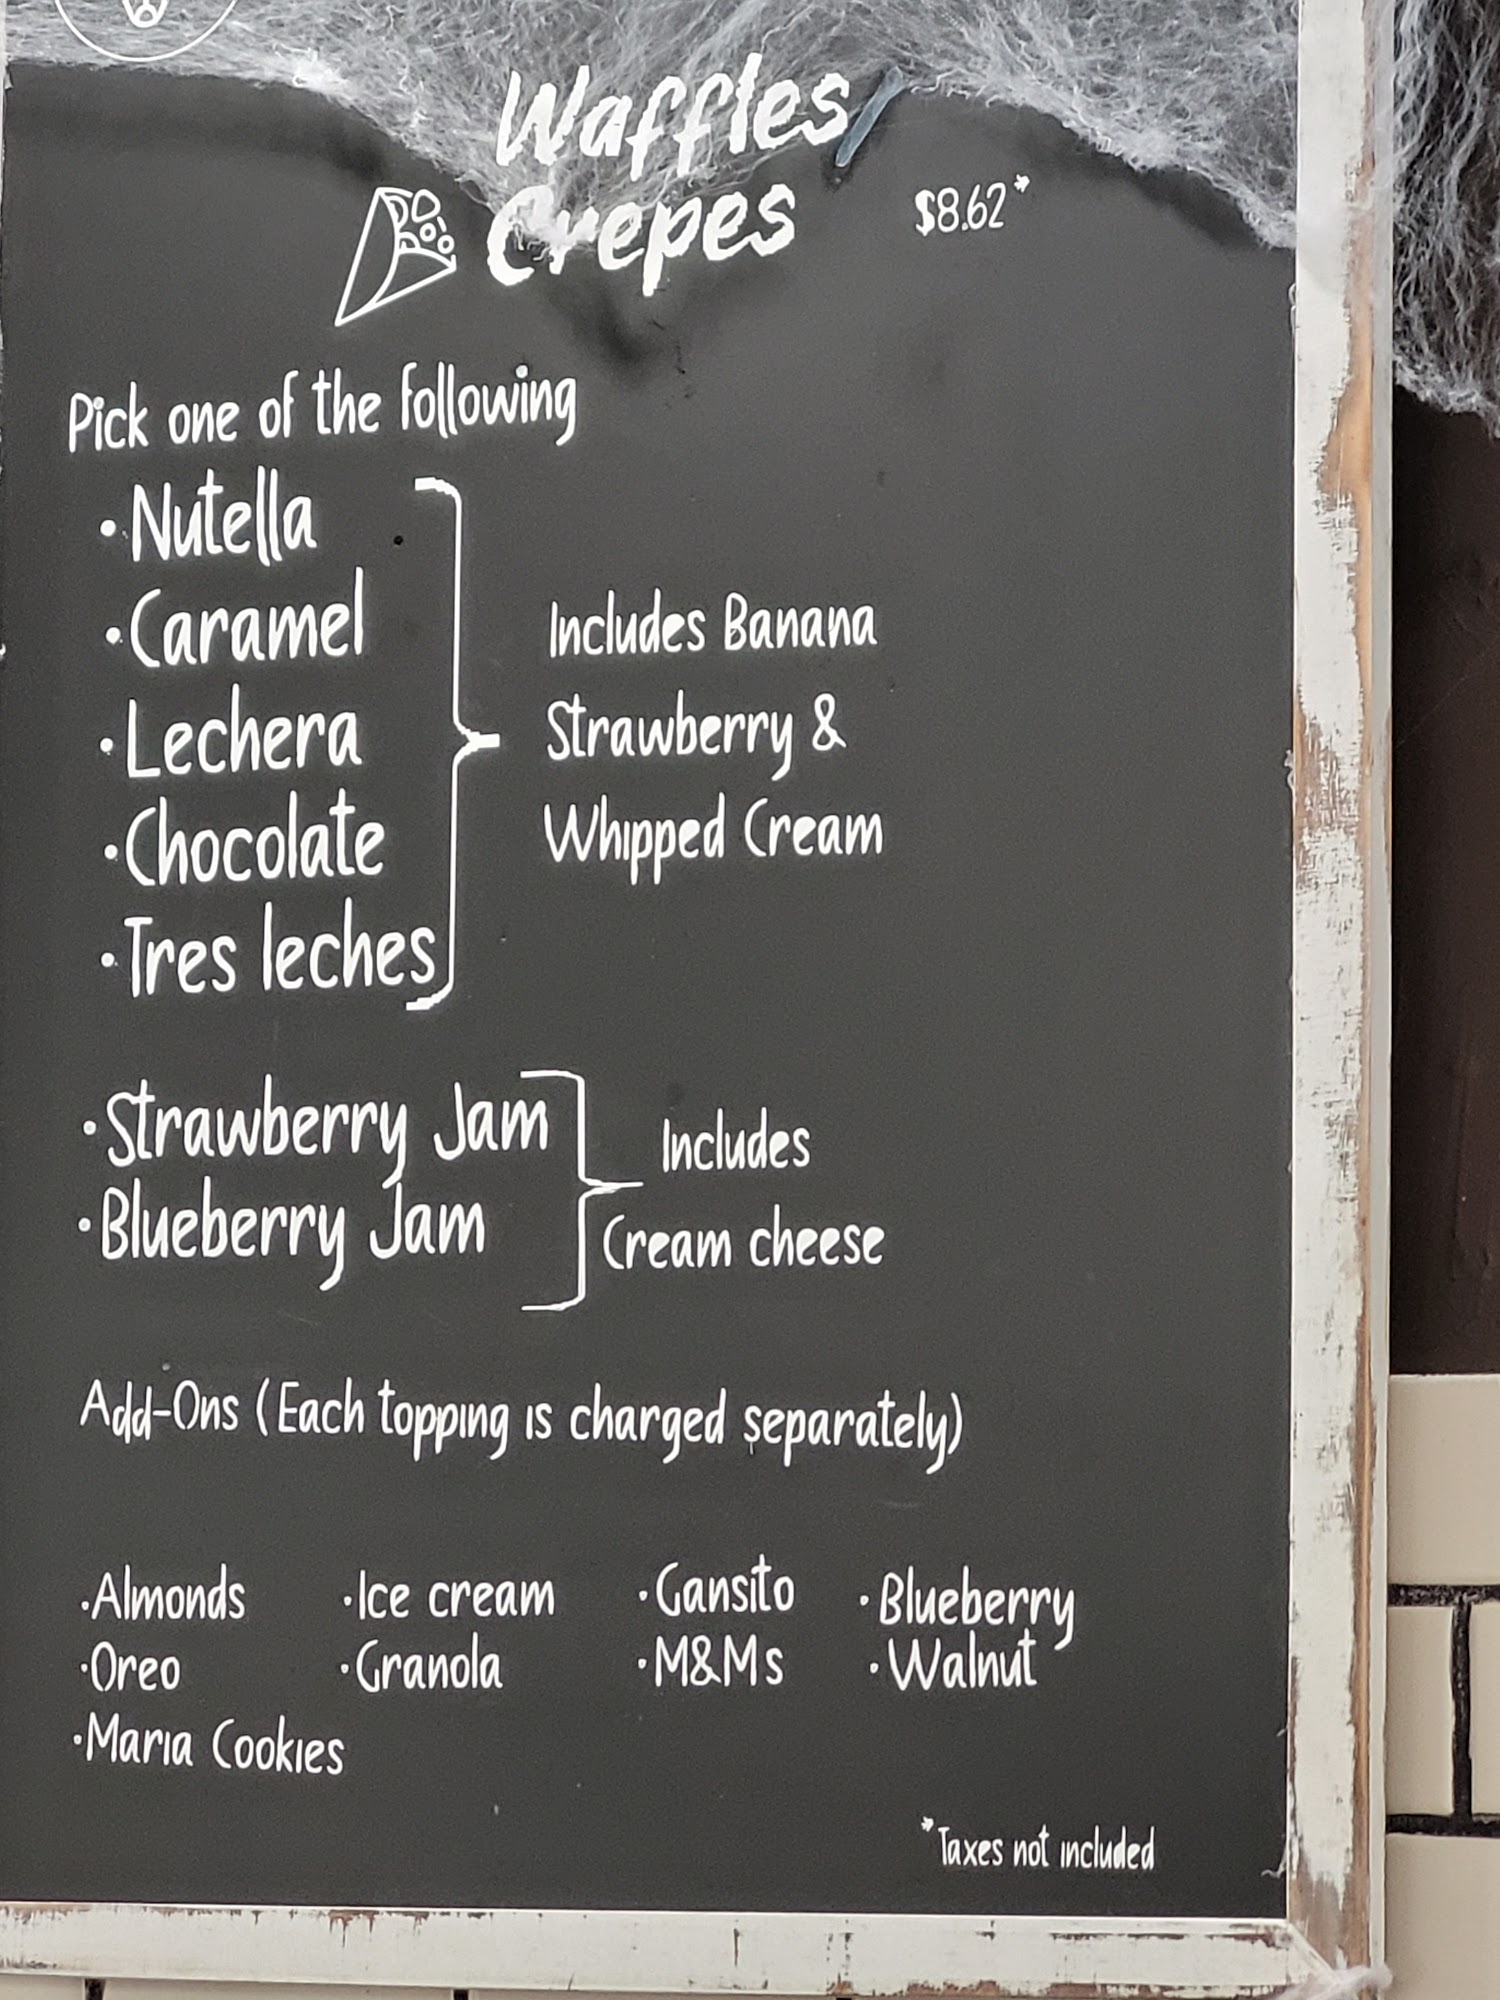 Waffles/
Crepes
$8.62*
Pick one of the following
·Nutella
·Caramel
·Lechera
·Chocolate
·Tres leches
Includes Banana
Strawberry &
Whipped Cream
·Strawberry Jam
·Blueberry Jam
Includes
Cream cheese
Add-Ons (Each topping is charged separately)
·Almonds
·Oreo
·Maria Cookies
·Ice cream
·Granola
·Gansito
·M&Ms
·Blueberry
·Walnut
*Taxes not included